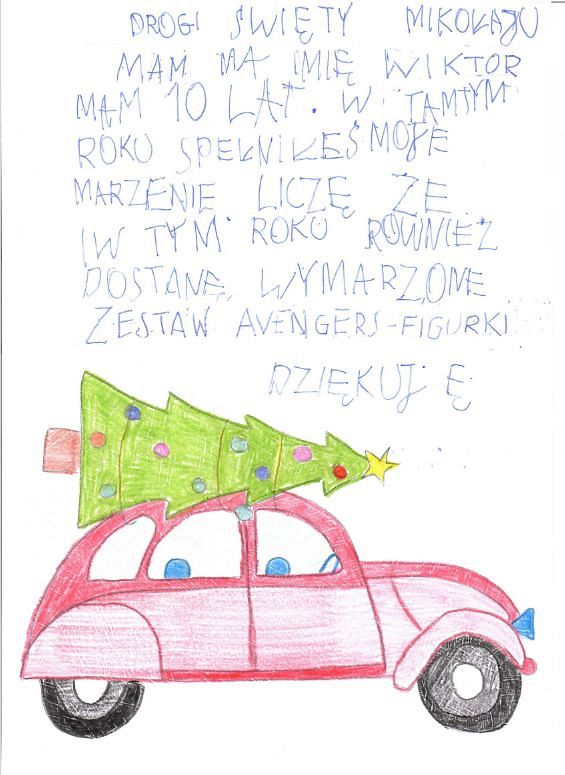 DROGI ŚWIĘTY MIKOŁAJU
MAM NA IMIĘ WIKTOR
MAM 10 LAT. W TAMTYM
ROKU SPEŁNIŁEŚ MOJE
MARZENIE LICZĘ ŻE
I W TYM ROKU RÓWNIEŻ
DOSTANĘ WYMARZONE
ZESTAW AVENGERS-FIGURKI
DZIĘKUJĘ